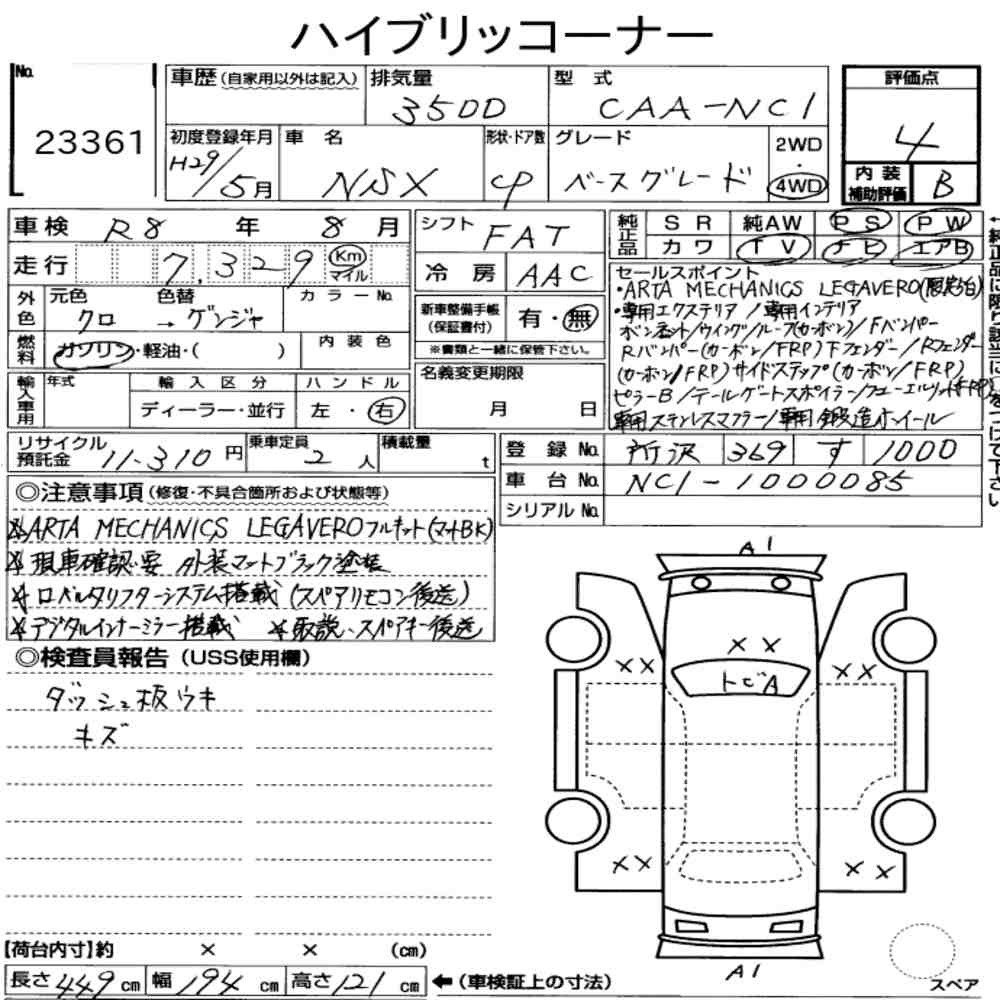 ハイブリッコーナー
No.
23361
車歴(自家用以外は記入)
排気量
3500
型 式
CAA-NC1
評価点
4
初度登録年月
H29/5月
車 名
NSX
形状・ドア数
CP
グレード
ベースグレード
2WD
・
4WD
内装
補助評価
B
車検 R8 年 8 月
走行 7,329 Km マイル
シフト
FAT
冷房 AAC
純正品
SR 純AW PS PW
カワ TV ナビ エアB
外色
元色 色替
クロ → ゲンジャ
カラーNo.
燃料
ガソリン・軽油・( )
内装色
新車整備手帳
(保証書付)
有・無
※書類と一緒に保管下さい。
セールスポイント
・ARTA MECHANICS LEGAVERO(限定10台)
・専用エクステリア/専用インテリア
ボンネット/ウイング/ルーフ(カーボン)/Fバンパー
Rバンパー(カーボン/FRP)Fフェンダー/Rフェンダー
(カーボン/FRP)サイドステップ(カーボン/FRP)
ピラーB/テールゲートスポイラー/フューエルリッド(FRP)
専用ステンレスマフラー/専用鍛造ホイール
←純正品に限り該当に○をつけて下さい
輸入車用
年式
輸入区分
ディーラー・並行
ハンドル
左・右
名義変更期限
月 日
リサイクル
預託金
11-310円
乗車定員
2人
積載量
t
登録No. 所沢 369 す 1000
車台No. NC1-1000085
シリアルNo.
◎注意事項(修復・不具合箇所および状態等)
※ARTA MECHANICS LEGAVEROフルキット(マットBK)
※現車確認要 外装マットブラック塗装
※ロベルタリフターシステム搭載(スペアリモコン後送)
※デジタルインナーミラー搭載 ※取説、スペアキー後送
◎検査員報告(USS使用欄)
ダッシュ板ウキ
キズ
A1
××
×× ××
トビA
×× ××
A1
スペア
【荷台内寸】約 × × (cm)
長さ449cm 幅194cm 高さ121cm ←(車検証上の寸法)